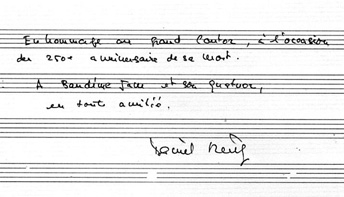 En hommage au grand Cantor, à l'occasion
du 250e anniversaire de sa mort.
A Sandrine et son Quatuor,
en toute amitié.
Daniel